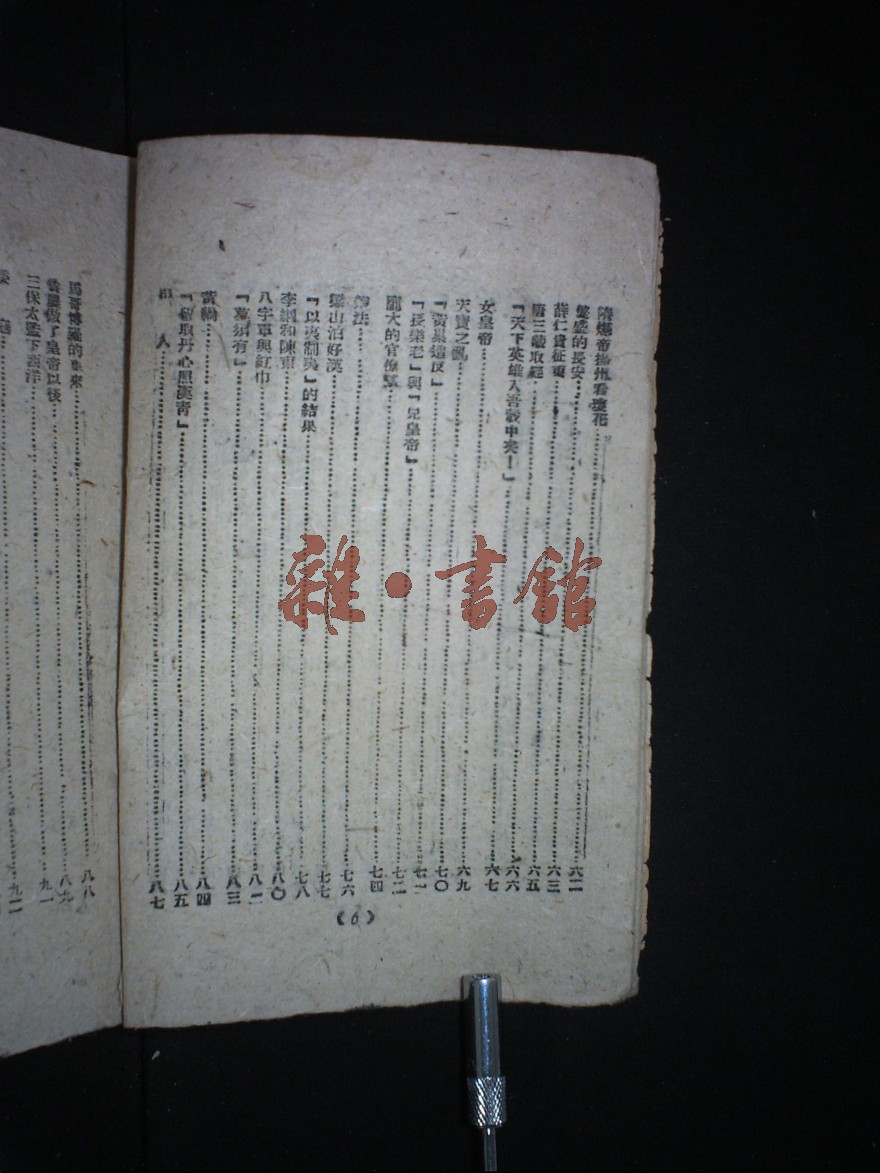 隋煬帝揚州看瓊花……六二
繁盛的長安……六三
薛仁貴征東……六五
唐三藏取經……六六
『天下英雄入吾彀中矣！』……六七
女皇帝
天寶之亂……六九
『黃巢造反』……七〇
『長樂老』與『兒皇帝』……七一
龐大的官僚羣……七二
法……七四
梁山泊好漢……七六
『以夷制夷』的結果……七七
李綱和陳東……七八
八字軍與紅巾……八〇
『莫須有』……八二
黃禍……八三
『留取丹心照漢青』……八四
人……八五
八七
(6)
馬哥博羅的東來……八八
做了皇帝以後……八九
三保太監下西洋……九一
九二
雜·書館